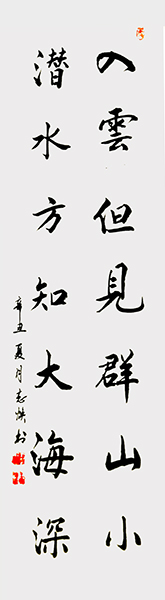 入雲但見群山小
潜水方知大海深
辛丑夏月志